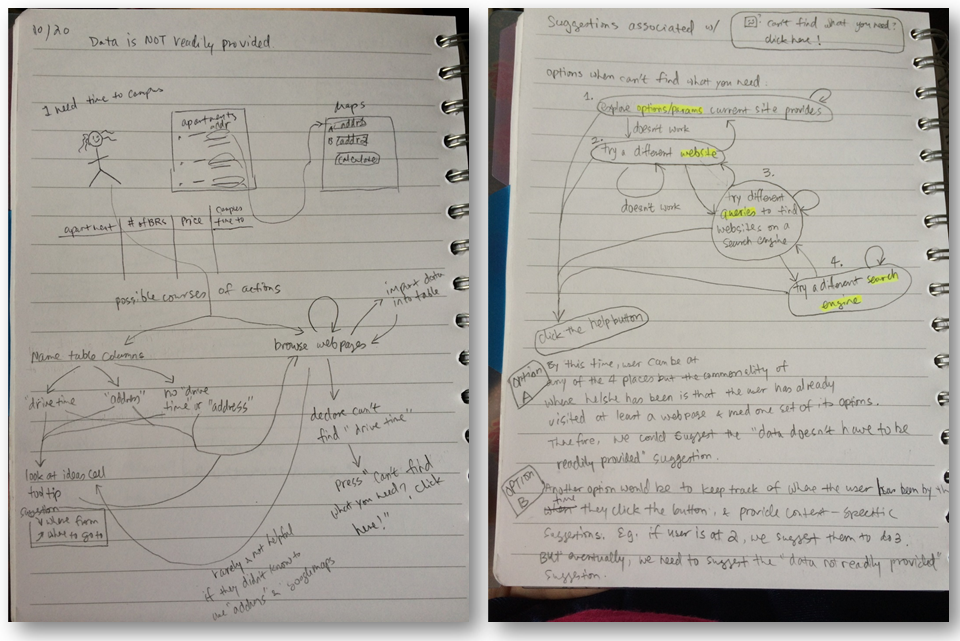 10/20
Data is NOT readily provided.
I need time to campus
apartments
addr
Maps
A: addr1
B: addr2
calculate
apartment | # of BRs | Price | campus time to
possible courses of actions
Name table columns
browse webpages
import data
into table
"drive time"
"address"
no "drive
time" or "address"
declare can't
find "drive time"
press "can't find
what you need? click
here!"
look at ideas cell
tooltip
suggestion
where from
where to go to
rarely not helpful
if they didn't know to
use "address" in googlemaps
Suggestions associated w/
can't find what you need?
click here!
options when can't find what you need:
1.
explore options/params current site provides
doesn't work
2.
try a different website
doesn't work
3.
try different
queries to find
websites on a
search engine
4.
try a different search
engine
click the help button
OPTION
A
By this time, user can be at
any of the 4 places but the commonality of
where he/she has been is that the user has already
visited at least a webpage & used one set of its options.
Therefore, we could suggest the "data doesn't have to be
readily provided" suggestion.
OPTION
B
Another option would be to keep track of where the user has been by the
time they click the button, & provide context-specific
suggestions. E.g. if user is at 2, we suggest them to do 3.
But eventually, we need to suggest the "data not readily provided"
suggestion.